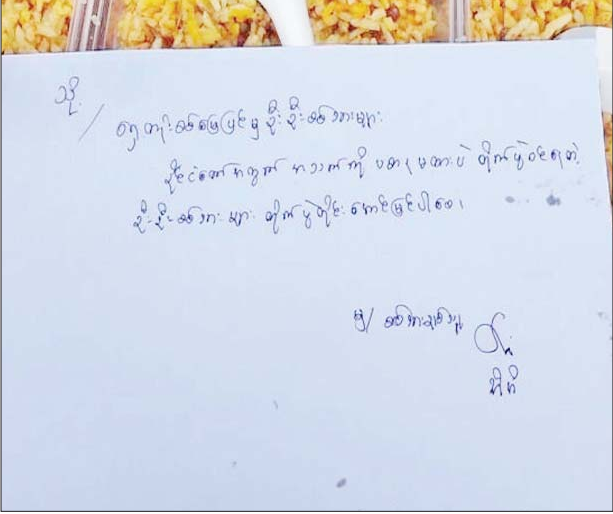 သို့
ရှေ့တန်းစစ်မြေပြင်မှ ဦးဦးစစ်သားများ
နိုင်ငံတော်အတွက် အသက်ကို ပဓာနမထားပဲ တိုက်ပွဲဝင်ရတဲ့
ဦးဦးစစ်သားများ တိုက်ပွဲတိုင်း အောင်မြင်ပါစေ။
မှ/ စစ်သားချစ်သူ